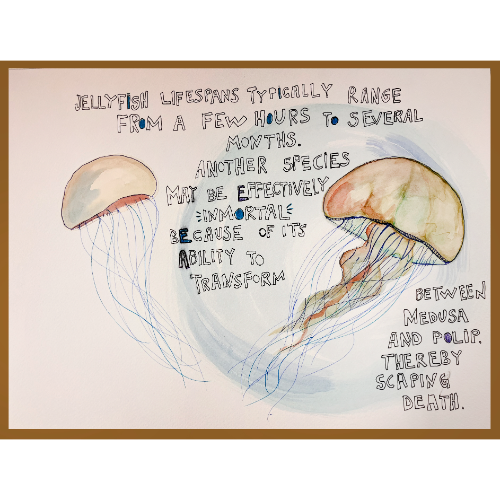 JELLYFISH LIFESPANS TYPICALLY RANGE
FROM A FEW HOURS TO SEVERAL
MONTHS.
ANOTHER SPECIES
MAY BE EFFECTIVELY
INMORTAL
BECAUSE OF IT'S
ABILITY TO
TRANSFORM
BETWEEN
MEDUSA
AND POLIP.
THEREBY
SCAPING
DEATH.